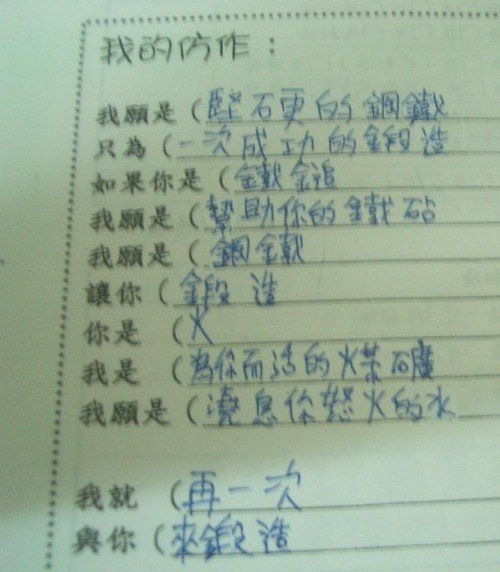 我的仿作：
我願是（堅石更的鋼鐵
只為（一次成功的鍛造
如果你是（鐵鎚
我願是（幫助你的鐵砧
我願是（鋼鐵
讓你（鍛造
你是（火
我是（為你而活的火柴礦
我願是（澆息你怒火的水
我就（再一次
與你（來鍛造